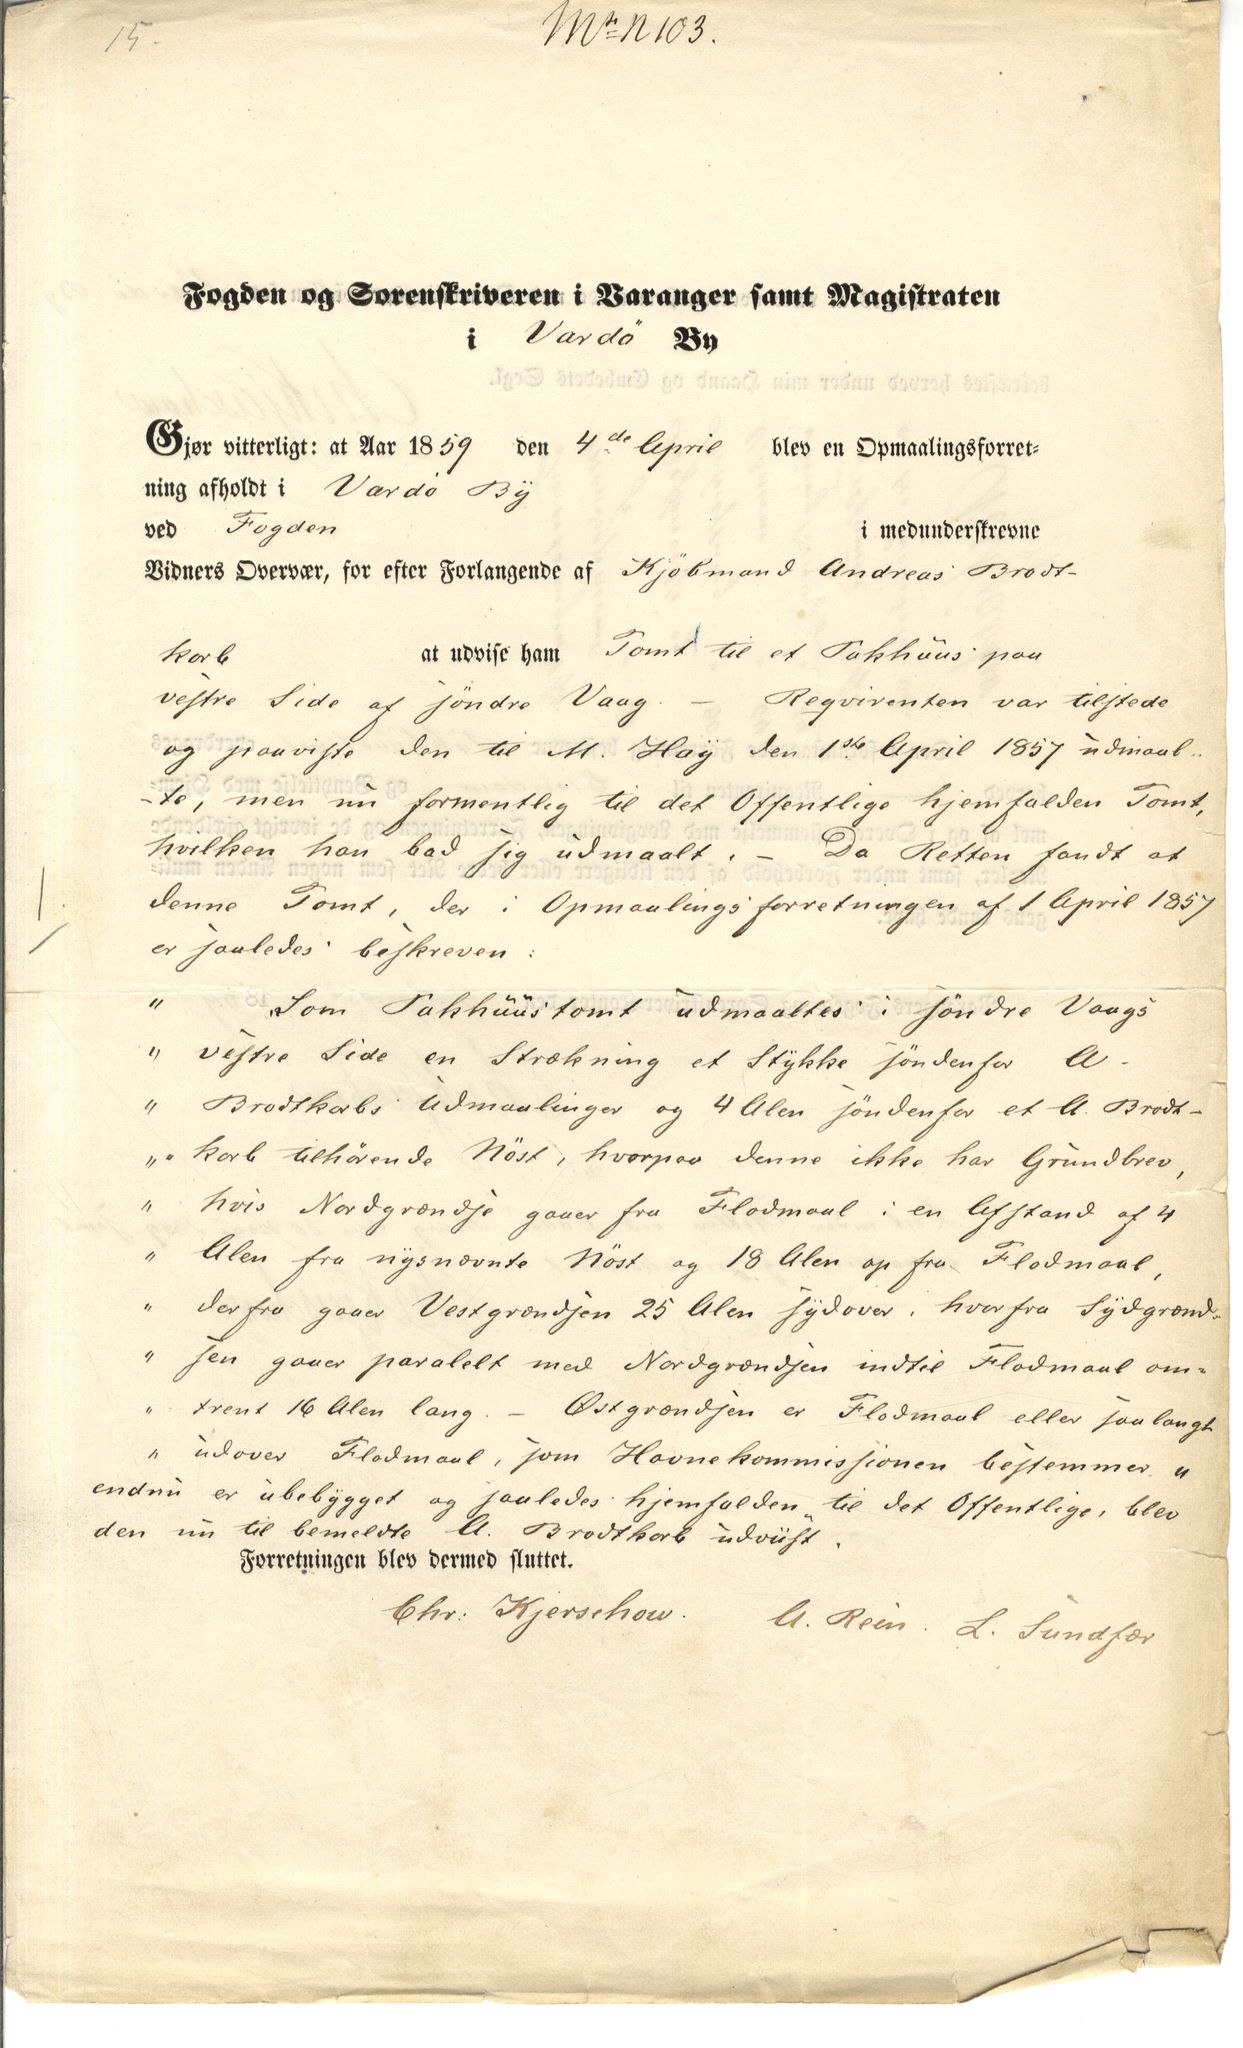 15.
Mtr N 103.
Fogden og Sorenskriveren i Varanger samt Magistraten
i Vardö By
Gjør vitterligt: at Aar 1859 den 4de April blev en Opmaalingsforret-
ning afholdt i Vardö Bÿ
ved Fogden i medunderskrevne
Vidners Overvær, for efter Forlangende af Kjöbmand Andreas Brodt-
korb at udvise ham Tomt til et Pakhüüs paa
vestre Side af söndre Vaag. – Reqvirenten var tilstede
og paaviste den til M. Haÿ den 1ste April 1857 üdmaal-
-te, men nü formentlig til det Offentlige hjemfalden Tomt,
hvilken han bad sig üdmaalt. – Da Retten fandt at
denne Tomt, der i Opmaalingsforretningen af 1 April 1857
er saaledes beskreven:
" Som Pakhüüstomt üdmaaltes i söndre Vaags
" vestre Side en Strækning et Stÿkke söndenfor A.
" Brodtkorbs Üdmaalinger og 4 Alen söndenfor et A. Brodt-
" korb tilhörende Nöst, hvorpaa denne ikke har Gründbrev,
" hvis Nordgrændse gaaer fra Flodmaal i en Afstand af 4
" Alen fra nÿsnævnte Nöst og 18 Alen op fra Flodmaal,
" derfra gaaer Vestgrændsen 25 Alen sÿdover, hvorfra Sÿdgrænd-
" sen gaaer paralelt med Nordgrændsen indtil Flodmaal om-
" trent 16 Alen lang. – Østgrændsen er Flodmaal eller saalangt
" üdover Flodmaal, som Havnekommissionen bestemmer "
endnü er übebÿgget og saaledes hjemfalden til det Offentlige, blev
den nü til bemeldte A. Brodtkorb üdviist.
Forretningen blev dermed sluttet.
Chr: Kjerschow. A. Rein. L. Sündfær